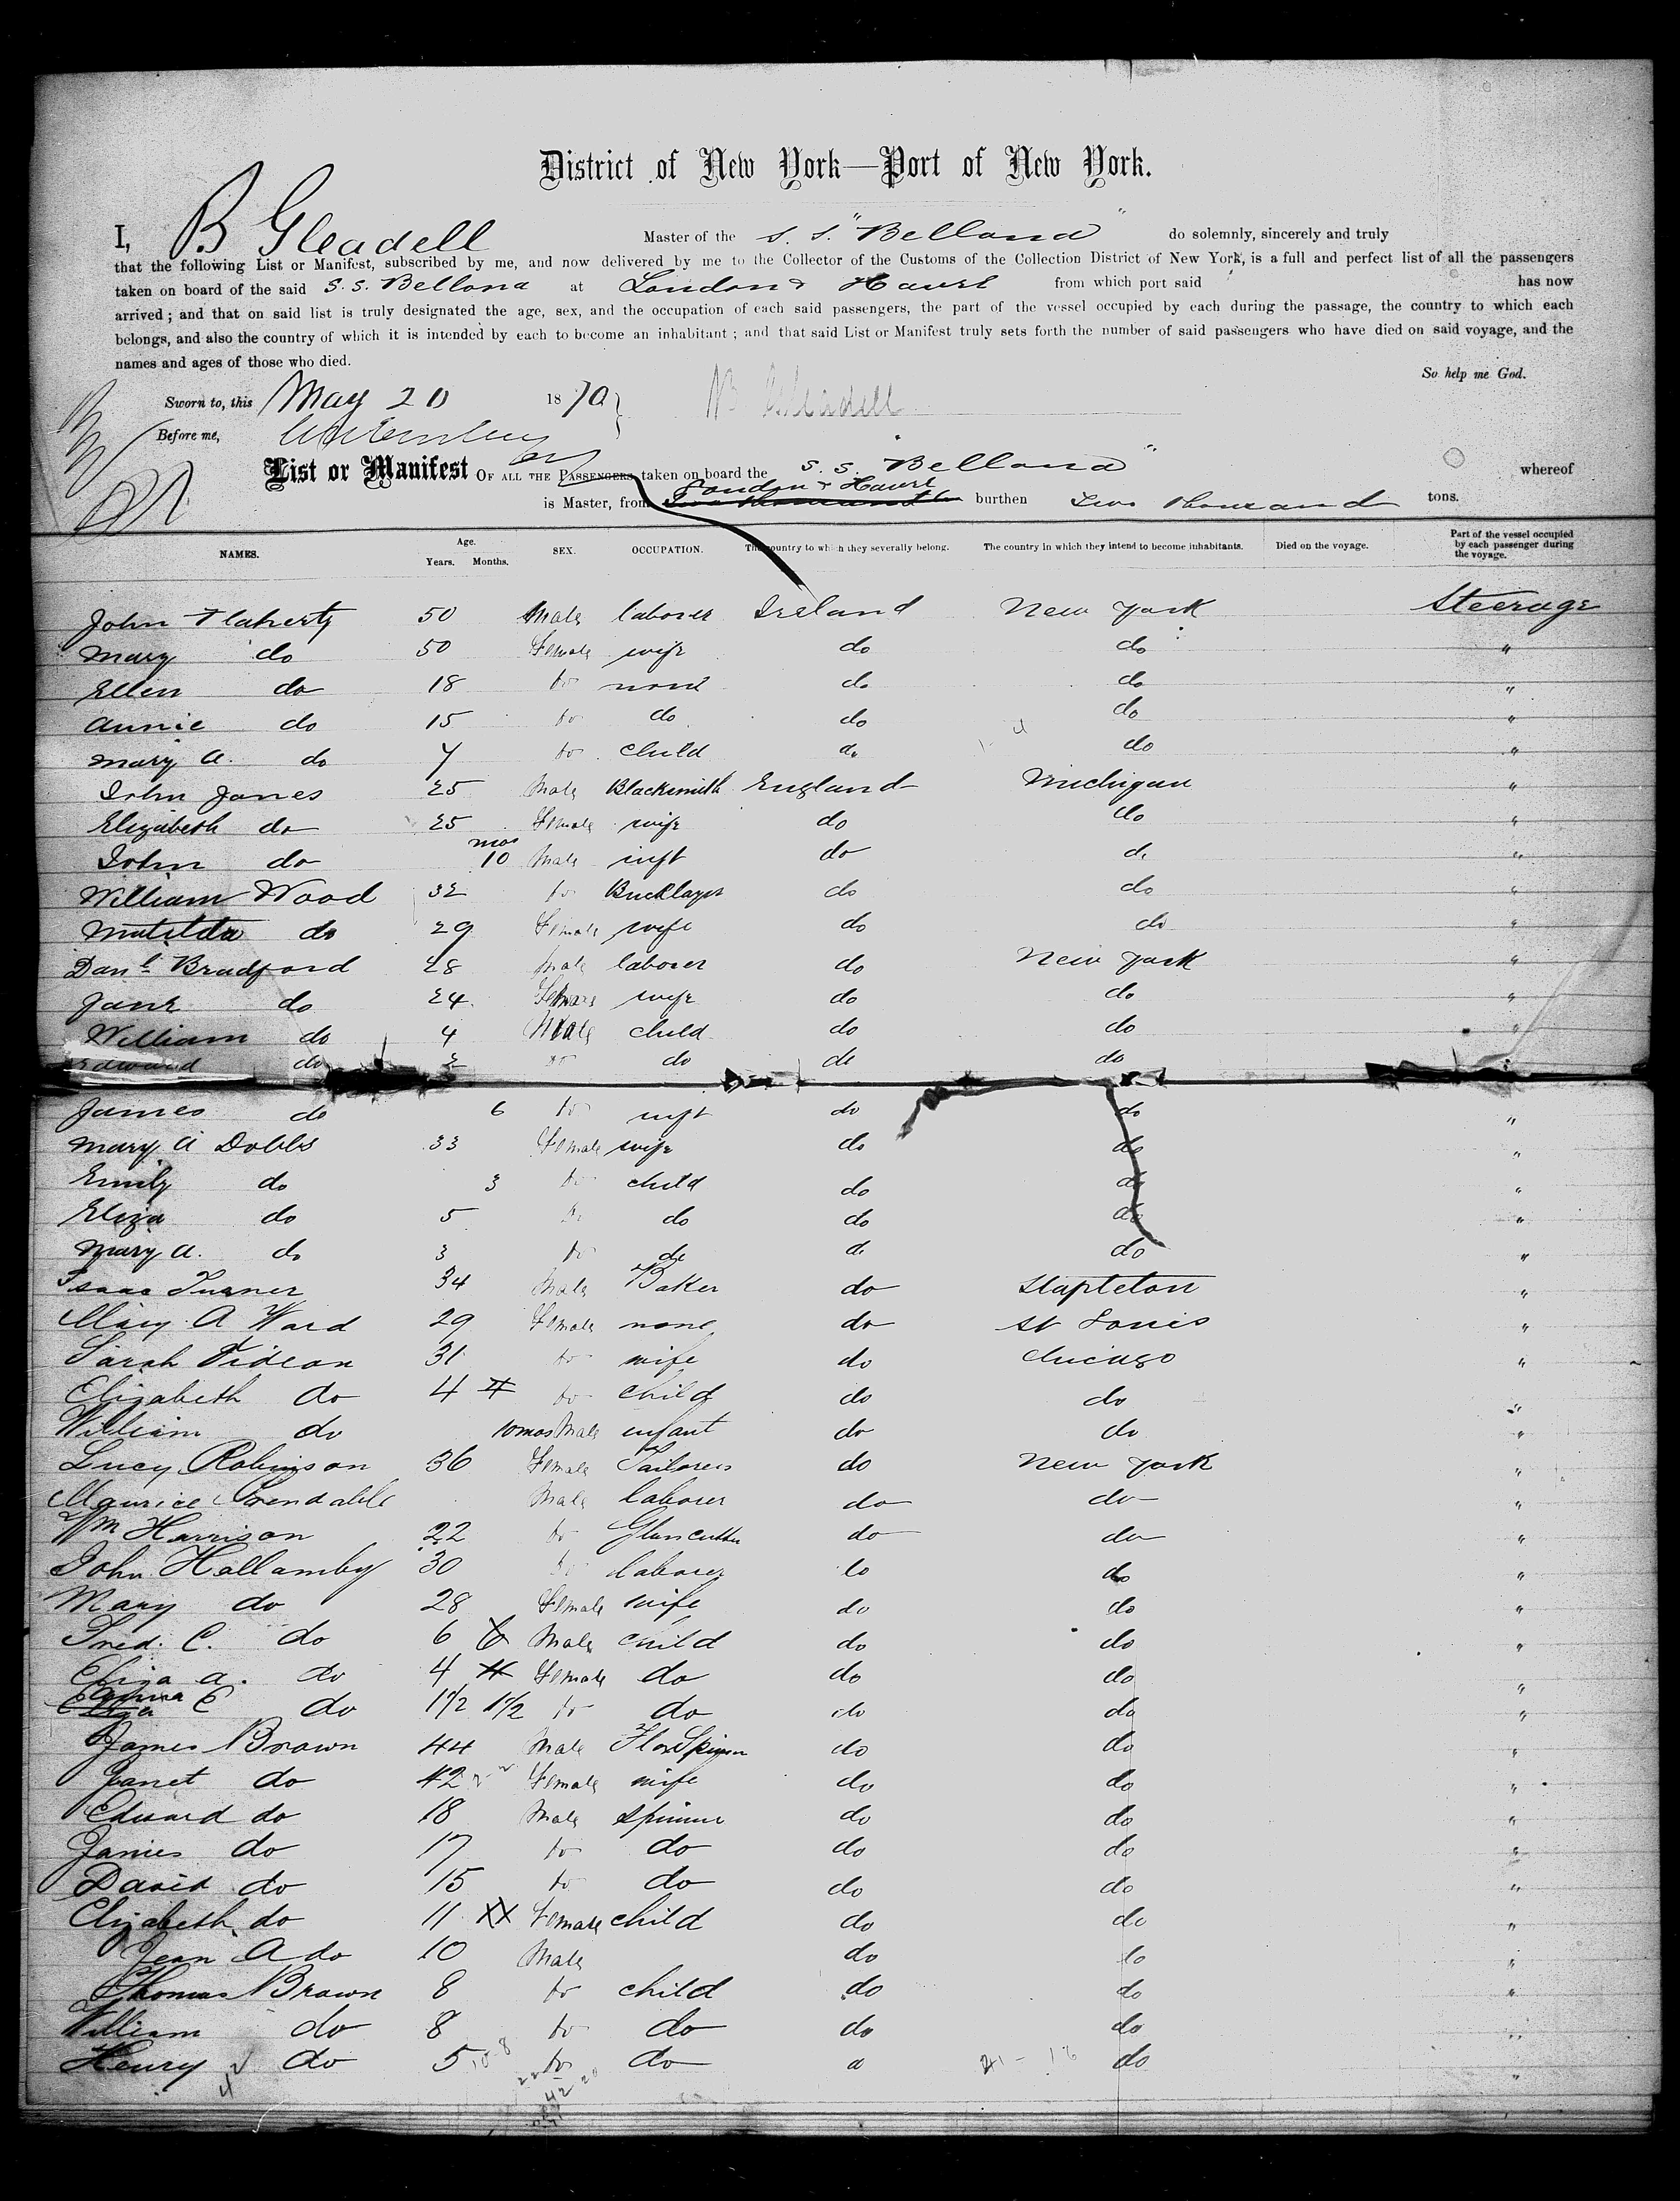 District of New York—Port of New York.
I, B Gleadell Master of the S. S. "Bellona" do solemnly, sincerely and truly
that the following List or Manifest, subscribed by me, and now delivered by me to the Collector of the Customs of the Collection District of New York, is a full and perfect list of all the passengers
taken on board of the said S. S. Bellona at London & Havre from which port said has now
arrived; and that on said list is truly designated the age, sex, and the occupation of each said passengers, the part of the vessel occupied by each during the passage, the country to which each
belongs, and also the country of which it is intended by each to become an inhabitant; and that said List or Manifest truly sets forth the number of said passengers who have died on said voyage, and the
names and ages of those who died.
So help me God.
Sworn to, this May 20 1870 B Gleadell
Before me,
List or Manifest OF ALL THE PASSENGERS taken on board the S. S. "Bellona" whereof
is Master, from London & Havre burthen Two Thousand tons.
NAMES. Age. Years. Months. SEX. OCCUPATION. The country to which they severally belong. The country in which they intend to become inhabitants. Died on the voyage. Part of the vessel occupied by each passenger during the voyage.
John Flaherty 50 Male laborer Ireland New York Steerage
Mary do 50 Female wife do do "
Ellen do 18 do none do do "
Annie do 15 do do do do "
Mary A. do 7 do child do do "
John Jones 25 Male Blacksmith England Michigan "
Elizabeth do 25 Female wife do do "
John do mos 10 Male inft do do "
William Wood 32 do Bricklayer do do "
Matilda do 29 Female wife do do "
Danl Bradford 28 Male laborer do New York "
Jane do 24 Female wife do do "
William do 4 Male child do do "
Edward do 2 do do do do
James do 6 do inft do do "
Mary A Dobbs 33 Female wife do do "
Emily do 3 do child do do "
Eliza do 5 do do do do "
Mary A. do 3 do do do do "
Isaac Turner 34 Male Baker do Stapleton "
Mary A Ward 29 Female none do St Louis "
Sarah Fideon 31 do wife do Chicago "
Elizabeth do 4 do child do do "
William do 10 mos Male infant do do "
Lucy Robinson 36 Female Tailoress do New York "
Maurice Male laborer do do "
Wm Harrison 22 do do do "
John Hallamby 30 do laborer do do "
Mary do 28 Female wife do do "
Fred. C. do 6 Male child do do "
Eliza A. do 4 Female do do do "
Emma E do 1 1/2 1 1/2 do do do do "
James Brown 44 Male Flax Spinner do do "
Janet do 42 Female wife do do "
Edward do 18 Male spinner do do "
James do 17 do do do do "
David do 15 do do do do "
Elizabeth do 11 Female child do do "
Jean A do 10 Male do do "
Thomas Brown 8 do child do do "
William do 8 do do do do "
Henry do 5 do do do do "